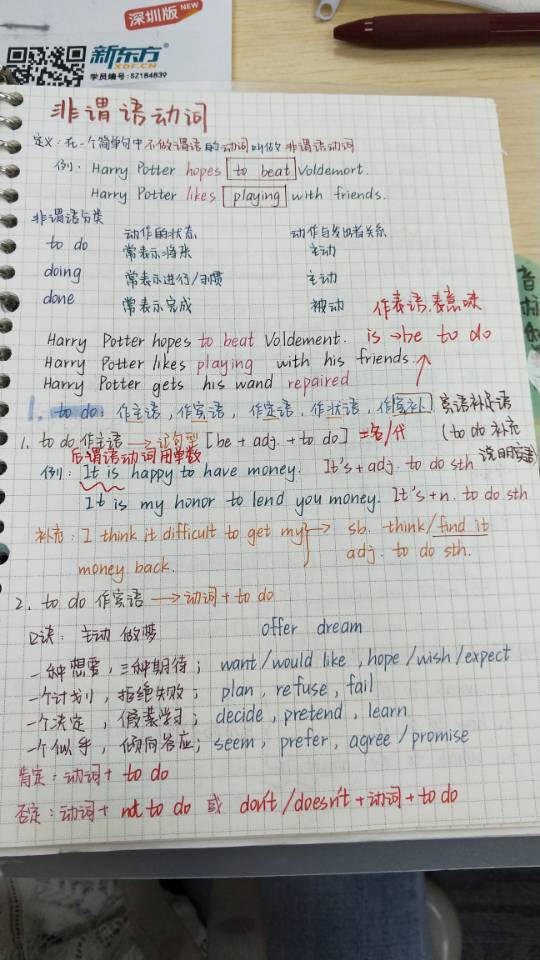 深圳版 NEW
新东方
XDF.CN
学员编号:SZ184839
非谓语动词
定义:在一个简单句中不做谓语的动词叫做非谓语动词
例:Harry Potter hopes to beat Voldemort.
Harry Potter likes playing with friends.
非谓语分类 动作的状态 动作与发出者关系
to do 常表示将来 主动
doing 常表示进行/习惯 主动
done 常表示完成 被动
作表语.表意味
Harry Potter hopes to beat Voldement. is → be to do
Harry Potter likes playing with his friends.
Harry Potter gets his wand repaired
1. to do: 作主语,作宾语,作定语,作状语,作宾补 宾语补足语
1. to do 作主语 → 让句型 [be + adj. + to do] = 名/代 (to do 补充
后谓语动词用单数
例:It is happy to have money. It's + adj. to do sth
It is my honor to lend you money. It's + n. to do sth
补充:I think it difficult to get my → sb. think/find it
money back. adj. to do sth.
2. to do 作宾语 → 动词 + to do
口诀:主动做梦 offer dream
一种想要,三种期待; want/would like, hope/wish/expect
一个计划,拒绝失败; plan, refuse, fail
一个决定,假装学习; decide, pretend, learn
一个似乎,倾向答应; seem, prefer, agree/promise
肯定:动词 + to do
否定:动词 + not to do 或 don't/doesn't + 动词 + to do